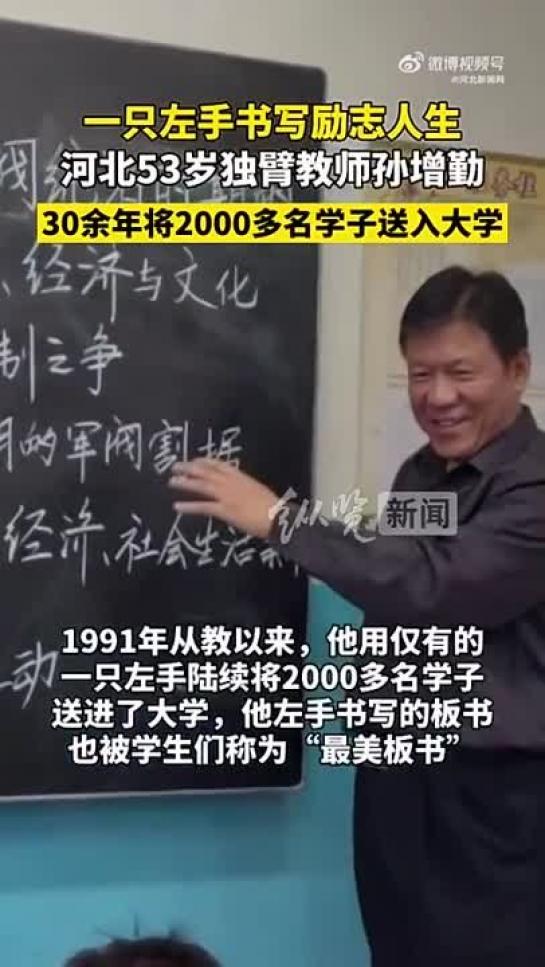 微博视频号
@河北新闻网
一只左手书写励志人生
河北53岁独臂教师孙增勤
30余年将2000多名学子送入大学
、经济与文化
制之争
的军阀割据
经济、社会生活
动
纵览新闻
1991年从教以来，他用仅有的
一只左手陆续将2000多名学子
送进了大学，他左手书写的板书
也被学生们称为“最美板书”